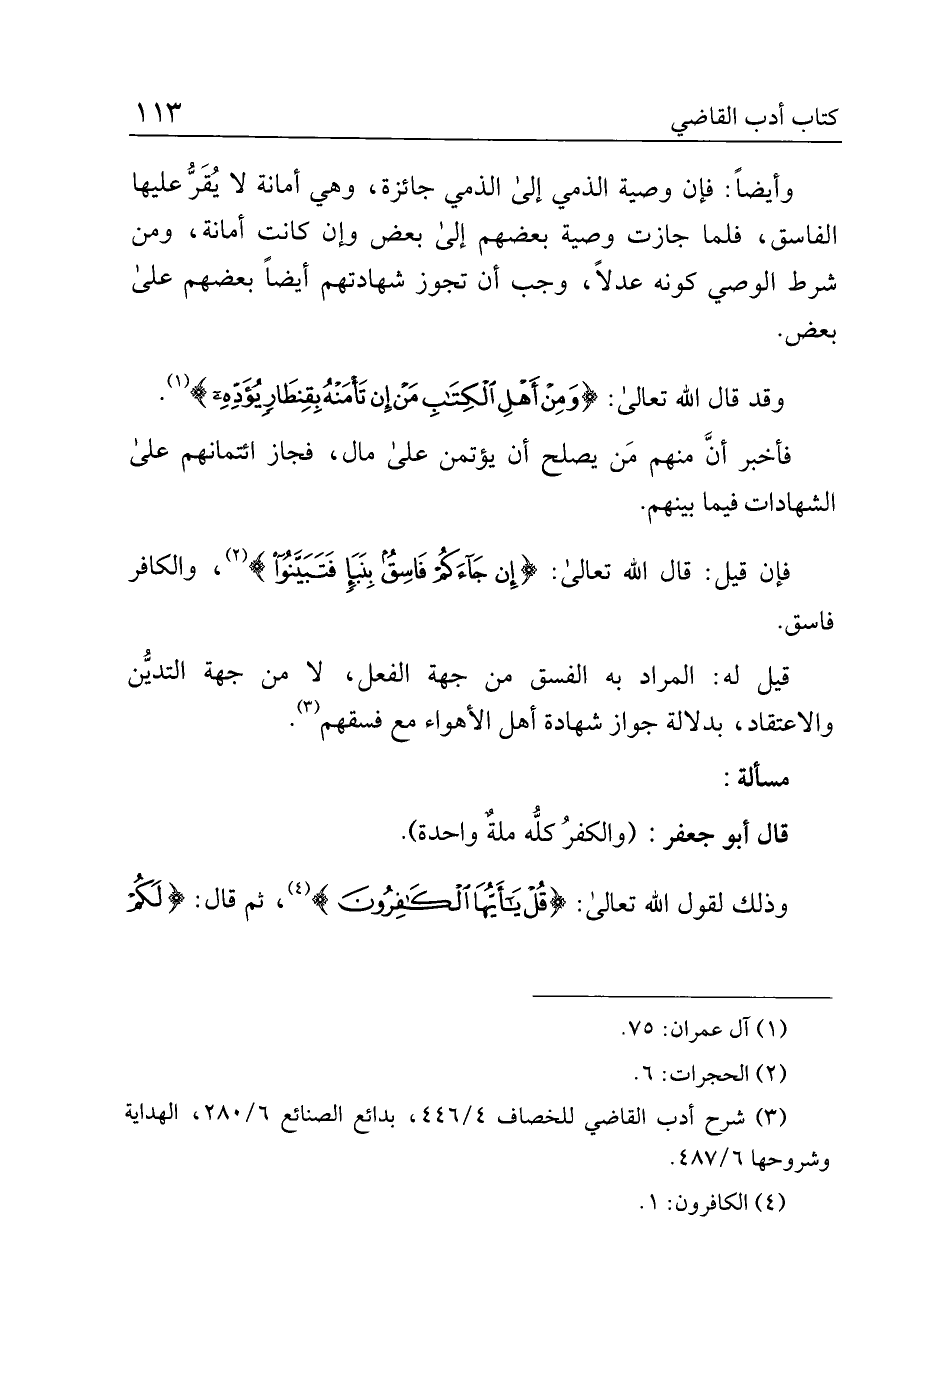 كتاب أدب القاضي ١١٣
وأيضاً: فإن وصية الذمي إلىٰ الذمي جائزة، وهي أمانة لا يُقَرُّ عليها
الفاسق، فلما جازت وصية بعضهم إلىٰ بعض وإن كانت أمانة، ومن
شرط الوصي كونه عدلاً، وجب أن تجوز شهادتهم أيضاً بعضهم علىٰ
بعض.
وقد قال الله تعالىٰ: ﴿وَمِنْ أَهْلِ ٱلْكِتَٰبِ مَنْ إِن تَأْمَنْهُ بِقِنطَارٍ يُؤَدِّهِۦٓ﴾(١).
فأخبر أنَّ منهم مَن يصلح أن يؤتمن علىٰ مال، فجاز ائتمانهم علىٰ
الشهادات فيما بينهم.
فإن قيل: قال الله تعالىٰ: ﴿إِن جَآءَكُمْ فَاسِقٌۢ بِنَبَإٍ فَتَبَيَّنُوٓا۟﴾(٢)، والكافر
فاسق.
قيل له: المراد به الفسق من جهة الفعل، لا من جهة التديُّن
والاعتقاد، بدلالة جواز شهادة أهل الأهواء مع فسقهم(٣).
مسألة :
قال أبو جعفر : (والكفرُ كلُّه ملةٌ واحدة).
وذلك لقول الله تعالىٰ: ﴿قُلْ يَٰٓأَيُّهَا ٱلْكَٰفِرُونَ﴾(٤)، ثم قال: ﴿لَكُمْ
(١) آل عمران: ٧٥.
(٢) الحجرات: ٦.
(٣) شرح أدب القاضي للخصاف ٤٤٦/٤، بدائع الصنائع ٢٨٠/٦، الهداية
وشروحها ٤٨٧/٦.
(٤) الكافرون: ١.